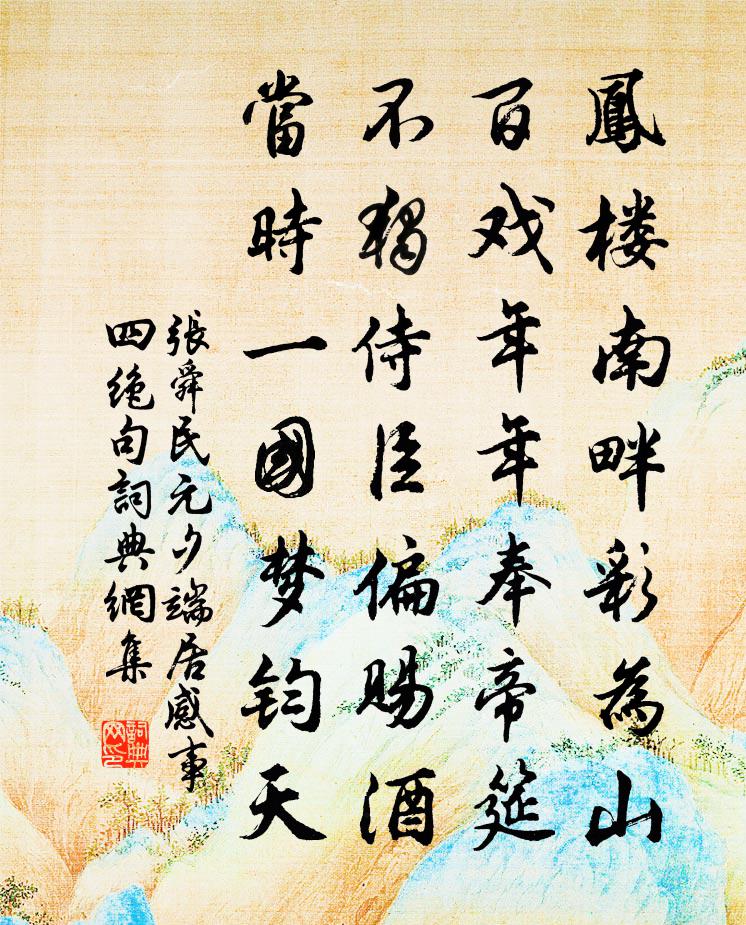 鳳楼南畔彩為山
百戏年年奉帝筵
不獨侍臣偏賜酒
當時一國梦钧天
張舜民元夕端居感事
四絶句詞典網集
詞典网印